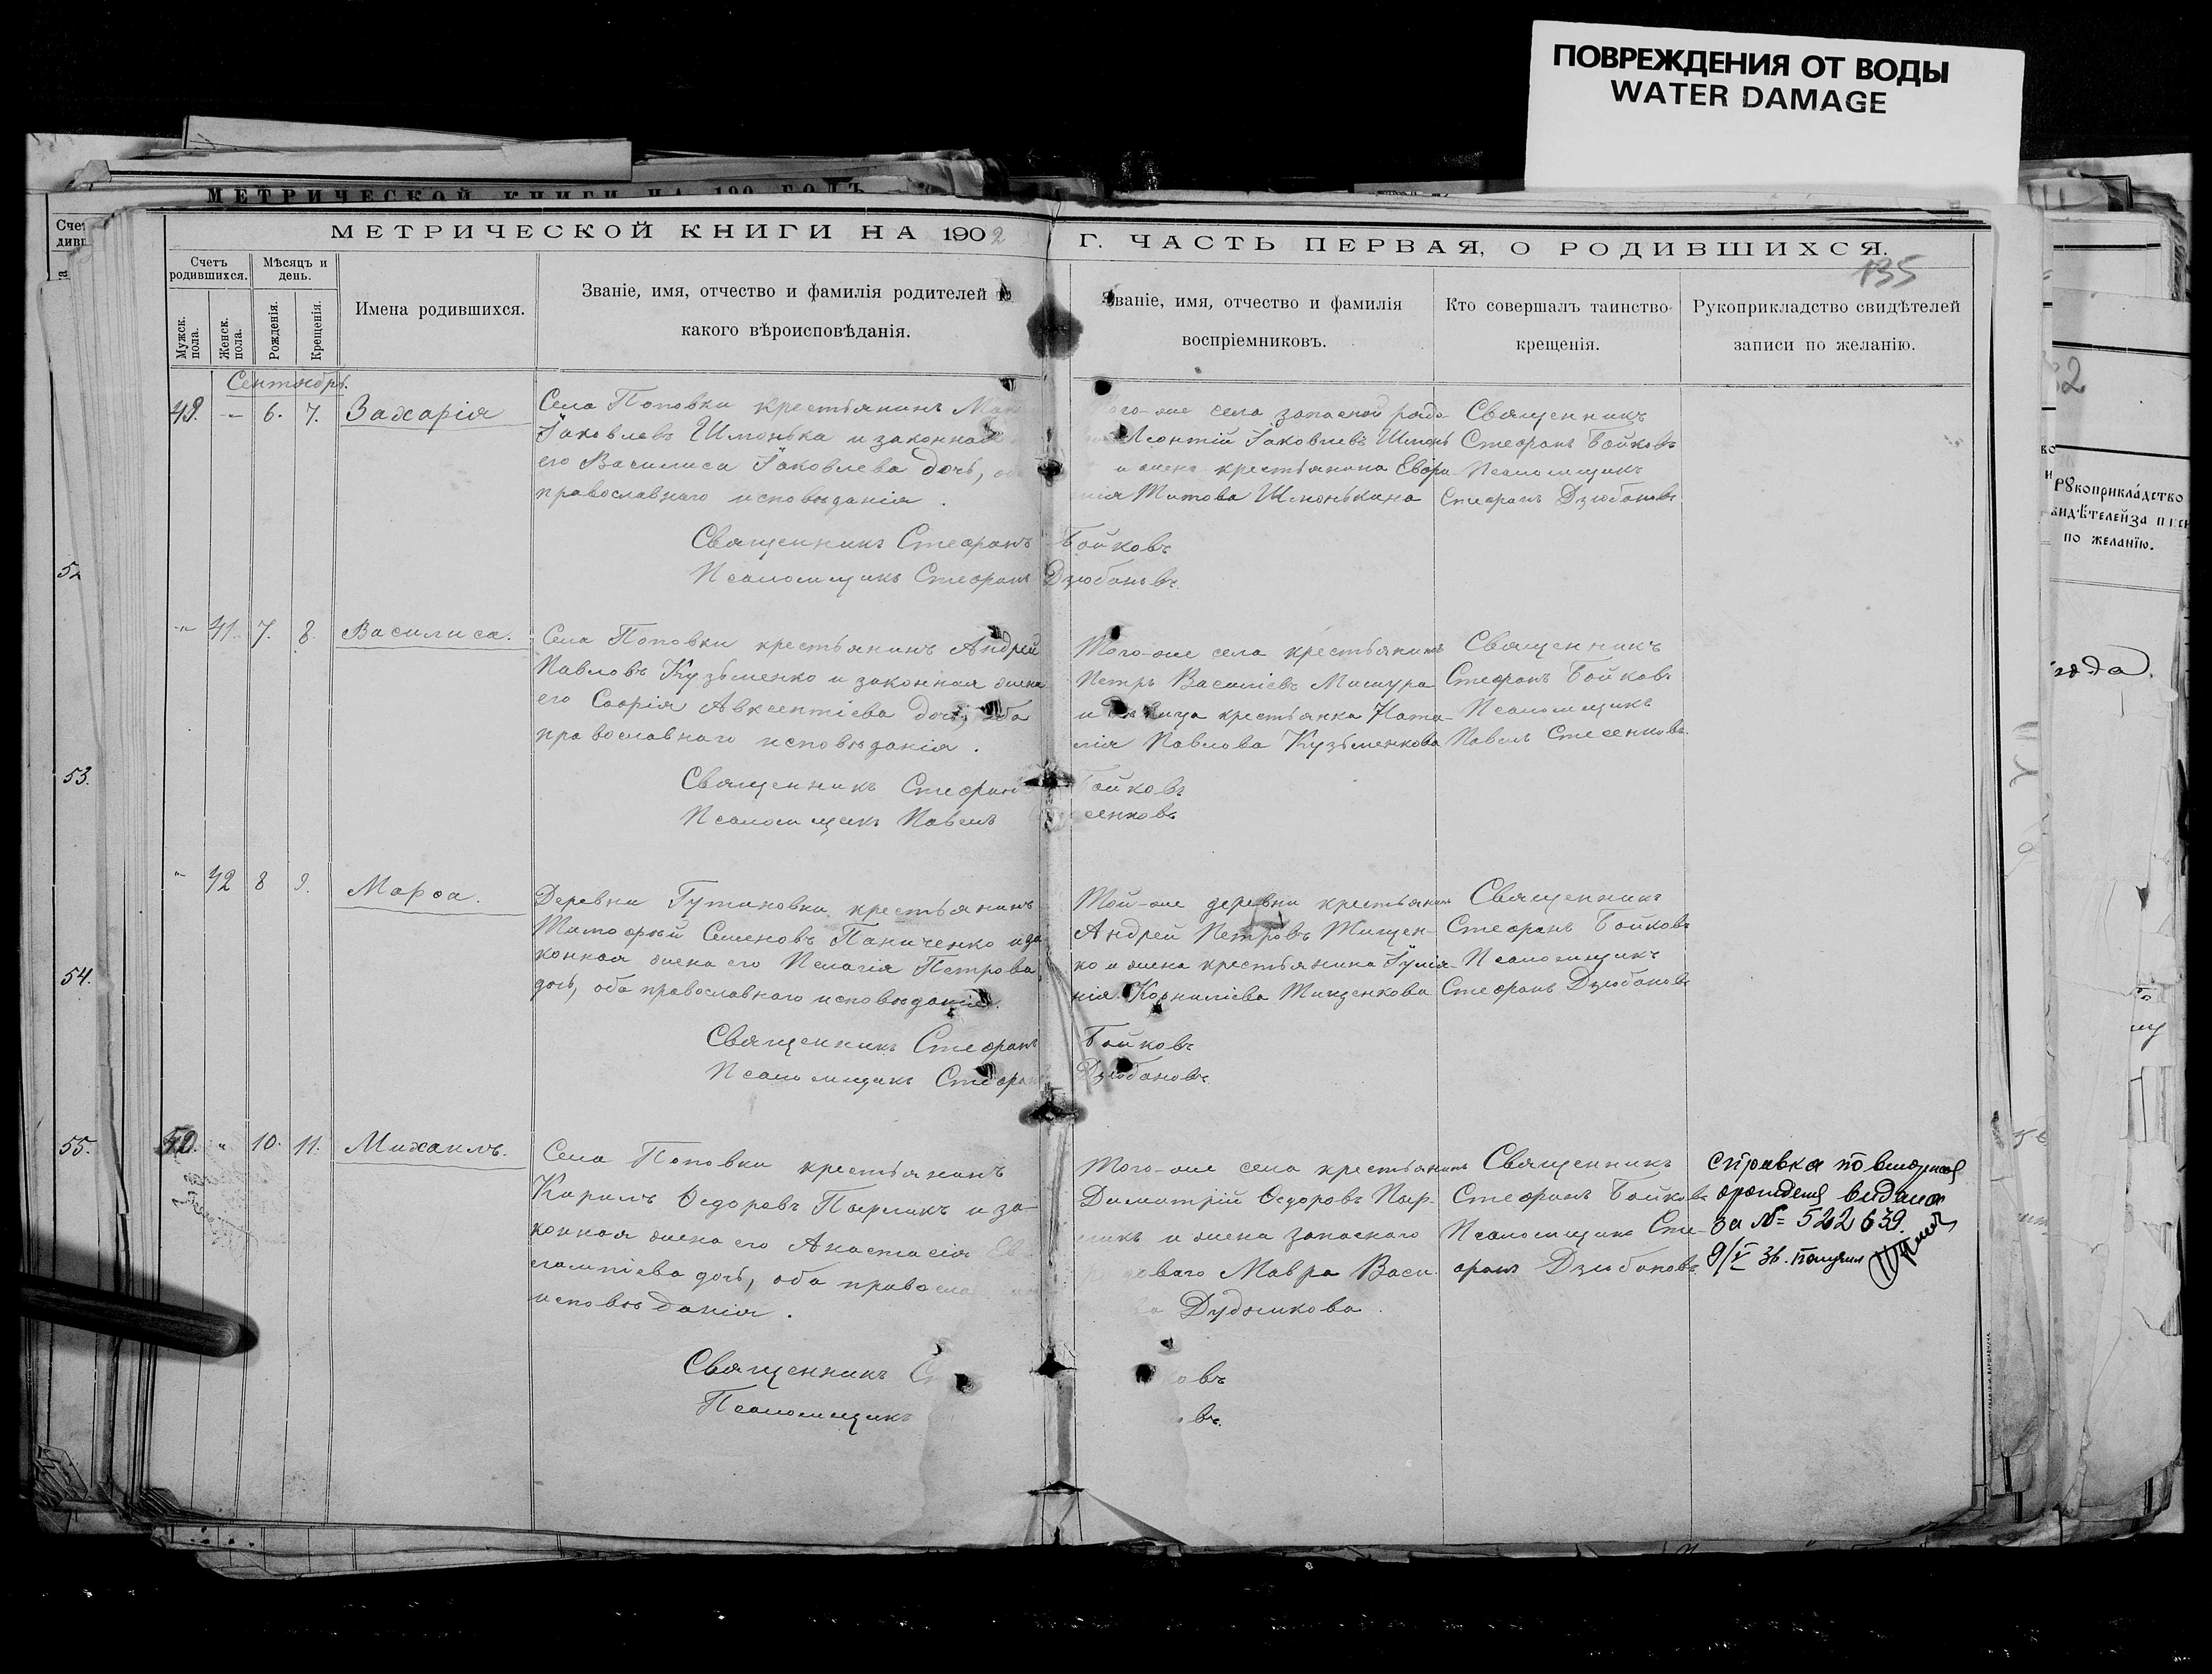 ПОВРЕЖДЕНИЯ ОТ ВОДЫ
WATER DAMAGE
МЕТРИЧЕСКОЙ КНИГИ НА 1902 Г. ЧАСТЬ ПЕРВАЯ, О РОДИВШИХСЯ.
135
Счетъ родившихся.
Мѣсяцъ и день.
Мужск. пола.
Женск. пола.
Рожденія.
Крещенія.
Имена родившихся.
Званіе, имя, отчество и фамилія родителей и
какого вѣроисповѣданія.
Званіе, имя, отчество и фамилія
воспріемниковъ.
Кто совершалъ таинство
крещенія.
Рукоприкладство свидѣтелей
записи по желанію.
Сентябрь.
49. -"- 6. 7. Захарія
Села Поповки крестьянинъ
Іаковлевъ Шмонька и законная
его Василиса Іаковлева дочь,
православнаго исповѣданія.
того-же села запасной рядо-
Леонтій Іаковлевъ Шмонь
и жена крестьянина Евфи-
мія Титова Шмонькина
Священникъ
Стефанъ Бойковъ
Псаломщикъ
Стефанъ Дзюбановъ
Священникъ Стефанъ Бойковъ
Псаломщикъ Стефанъ Дзюбановъ.
-"- 41. 7. 8. Василиса.
Села Поповки крестьянинъ Андрей
Павловъ Кузьменко и законная жена
его Софія Авксентіева дочь, оба
православнаго исповѣданія.
Того-же села крестьянинъ
Петръ Василіевъ Мишура
и дѣвица крестьянка Ната-
лія Павлова Кузьменкова
Священникъ
Стефанъ Бойковъ
Псаломщикъ
Павелъ Стесенковъ.
Священникъ Стефанъ Бойковъ
Псаломщикъ Павелъ сенковъ
" 42 8 9. Марѳа.
Деревни Гутировки крестьянинъ
Тимоѳей Семеновъ Паниченко и за-
конная жена его Пелагія Петрова
дочь, оба православнаго исповѣданія.
Той-же деревни крестьянинъ
Андрей Петровъ Тищен-
ко и жена крестьянина Іулiа-
нія Корниліева Тищенкова
Священникъ
Стефанъ Бойковъ
Псаломщикъ
Стефанъ Дзюбановъ
Священникъ Стефанъ Бойковъ
Псаломщикъ Стефанъ Дзюбановъ.
50. " 10. 11. Михаилъ.
Села Поповки крестьянинъ
Кирилъ Ѳедоровъ Пырликъ и за-
конная жена его Анастасія Ев
лампіева дочь, оба правосла
исповѣданія.
Того-же села крестьянинъ
Димитрій Ѳедоровъ Пыр-
ликъ и жена запаснаго
рядоваго Мавра Васи-
ва Дудникова.
Священникъ
Стефанъ Бойковъ
Псаломщикъ Сте-
фанъ Дзюбановъ.
Справка по
видана
за №= 522639.
9/V 36.
Священникъ
овъ
Псаломщикъ
въ.
52
53.
54.
55.
Рукоприкладство
по желанію.
года.